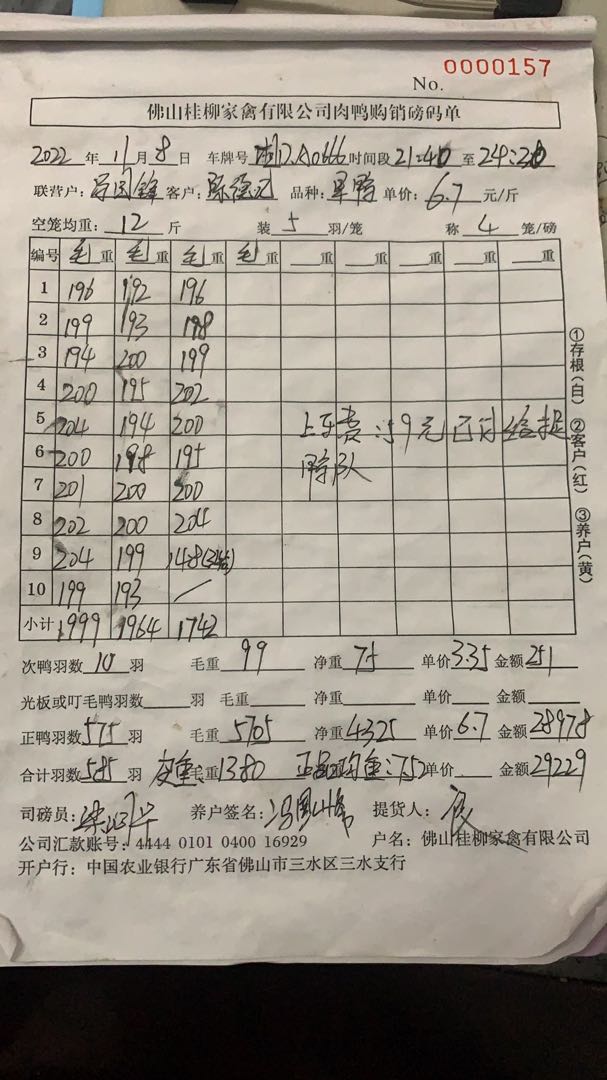 No. 0000157
佛山桂柳家禽有限公司肉鸭购销磅码单
2022 年 11 月 8 日 车牌号 D.A0666 时间段 21:40 至 24:20
联营户: 客户: 品种: 鸭 单价: 6.7 元/斤
空笼均重: 12 斤 装 5 羽/笼 称 4 笼/磅
编号 毛重 毛重 毛重 毛重 重 重 重 重
1 196 192 196
2 199 193 198
3 194 200 199
4 200 195 202
5 204 194 200 上车费:59元已付给捉
6 200 198 195 鸭队
7 201 200 200
8 202 200 204
9 204 199 148(3笼)
10 199 193 /
小计 1999 1964 1742
①存根(白) ②客户(红) ③养户(黄)
次鸭羽数 10 羽 毛重 99 净重 75 单价 3.35 金额 251
光板或叮毛鸭羽数 羽 毛重 净重 单价 金额
正鸭羽数 575 羽 毛重 5705 净重 4325 单价 6.7 金额 28978
合计羽数 585 羽 皮重:毛重 1380 正品均重:7.52 单价 金额 29229
司磅员: 养户签名: 提货人:
公司汇款账号: 4444 0101 0400 16929 户名: 佛山桂柳家禽有限公司
开户行: 中国农业银行广东省佛山市三水区三水支行